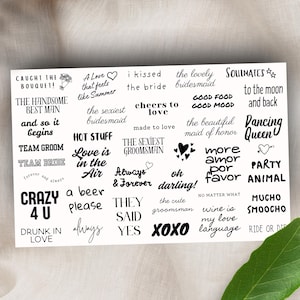 CAUGHT THE
BOUQUET!
A Love
that feels
like Summer
i kissed
the bride
the lovely
bridesmaid
SOULMATES
THE HANDSOME
BEST MAN
the sexiest
bridesmaid
cheers to
love
GOOD FOOD
GOOD MOOD
to the moon
and back
and so it
begins
made to love
the beautiful
maid of honor
Dancing
Queen
TEAM GROOM
HOT STUFF
THE SEXIEST
GROOMSMAN
TEAM BRIDE
Love is
in the
Air
more
amor
por
favor
PARTY
ANIMAL
FOREVER AND
Always
& Forever
oh
darling!
CRAZY
4 U
a beer
please
THEY
SAID
YES
the cute
groomsman
NO MATTER WHAT
MUCHO
SMOOCHO
DRUNK IN
LOVE
always
XOXO
wine is
my love
language
RIDE OR DIE